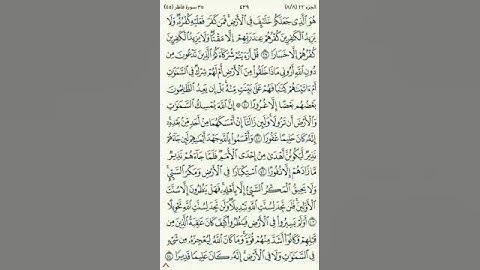 الجزء ٢٢ (٨/٨) ٤٣٩ ٣٥ سورة فاطر (٤٥)
هُوَ ٱلَّذِى جَعَلَكُمْ خَلَٰٓئِفَ فِى ٱلْأَرْضِ فَمَن كَفَرَ فَعَلَيْهِ كُفْرُهُۥ وَلَا
يَزِيدُ ٱلْكَٰفِرِينَ كُفْرُهُمْ عِندَ رَبِّهِمْ إِلَّا مَقْتًا وَلَا يَزِيدُ ٱلْكَٰفِرِينَ
كُفْرُهُمْ إِلَّا خَسَارًا ٣٩ قُلْ أَرَءَيْتُمْ شُرَكَآءَكُمُ ٱلَّذِينَ تَدْعُونَ مِن
دُونِ ٱللَّهِ أَرُونِى مَاذَا خَلَقُوا۟ مِنَ ٱلْأَرْضِ أَمْ لَهُمْ شِرْكٌ فِى ٱلسَّمَٰوَٰتِ
أَمْ ءَاتَيْنَٰهُمْ كِتَٰبًا فَهُمْ عَلَىٰ بَيِّنَتٍ مِّنْهُ بَلْ إِن يَعِدُ ٱلظَّٰلِمُونَ
بَعْضُهُم بَعْضًا إِلَّا غُرُورًا ٤٠ ۞ إِنَّ ٱللَّهَ يُمْسِكُ ٱلسَّمَٰوَٰتِ
وَٱلْأَرْضَ أَن تَزُولَا وَلَئِن زَالَتَآ إِنْ أَمْسَكَهُمَا مِنْ أَحَدٍ مِّنۢ بَعْدِهِۦٓ
إِنَّهُۥ كَانَ حَلِيمًا غَفُورًا ٤١ وَأَقْسَمُوا۟ بِٱللَّهِ جَهْدَ أَيْمَٰنِهِمْ لَئِن جَآءَهُمْ
نَذِيرٌ لَّيَكُونُنَّ أَهْدَىٰ مِنْ إِحْدَى ٱلْأُمَمِ فَلَمَّا جَآءَهُمْ نَذِيرٌ
مَّا زَادَهُمْ إِلَّا نُفُورًا ٤٢ ٱسْتِكْبَارًا فِى ٱلْأَرْضِ وَمَكْرَ ٱلسَّيِّئِ
وَلَا يَحِيقُ ٱلْمَكْرُ ٱلسَّيِّئُ إِلَّا بِأَهْلِهِۦ فَهَلْ يَنظُرُونَ إِلَّا سُنَّتَ
ٱلْأَوَّلِينَ فَلَن تَجِدَ لِسُنَّتِ ٱللَّهِ تَبْدِيلًا وَلَن تَجِدَ لِسُنَّتِ ٱللَّهِ تَحْوِيلًا
٤٣ أَوَلَمْ يَسِيرُوا۟ فِى ٱلْأَرْضِ فَيَنظُرُوا۟ كَيْفَ كَانَ عَٰقِبَةُ ٱلَّذِينَ مِن
قَبْلِهِمْ وَكَانُوٓا۟ أَشَدَّ مِنْهُمْ قُوَّةً وَمَا كَانَ ٱللَّهُ لِيُعْجِزَهُۥ مِن شَىْءٍ
فِى ٱلسَّمَٰوَٰتِ وَلَا فِى ٱلْأَرْضِ إِنَّهُۥ كَانَ عَلِيمًا قَدِيرًا ٤٤